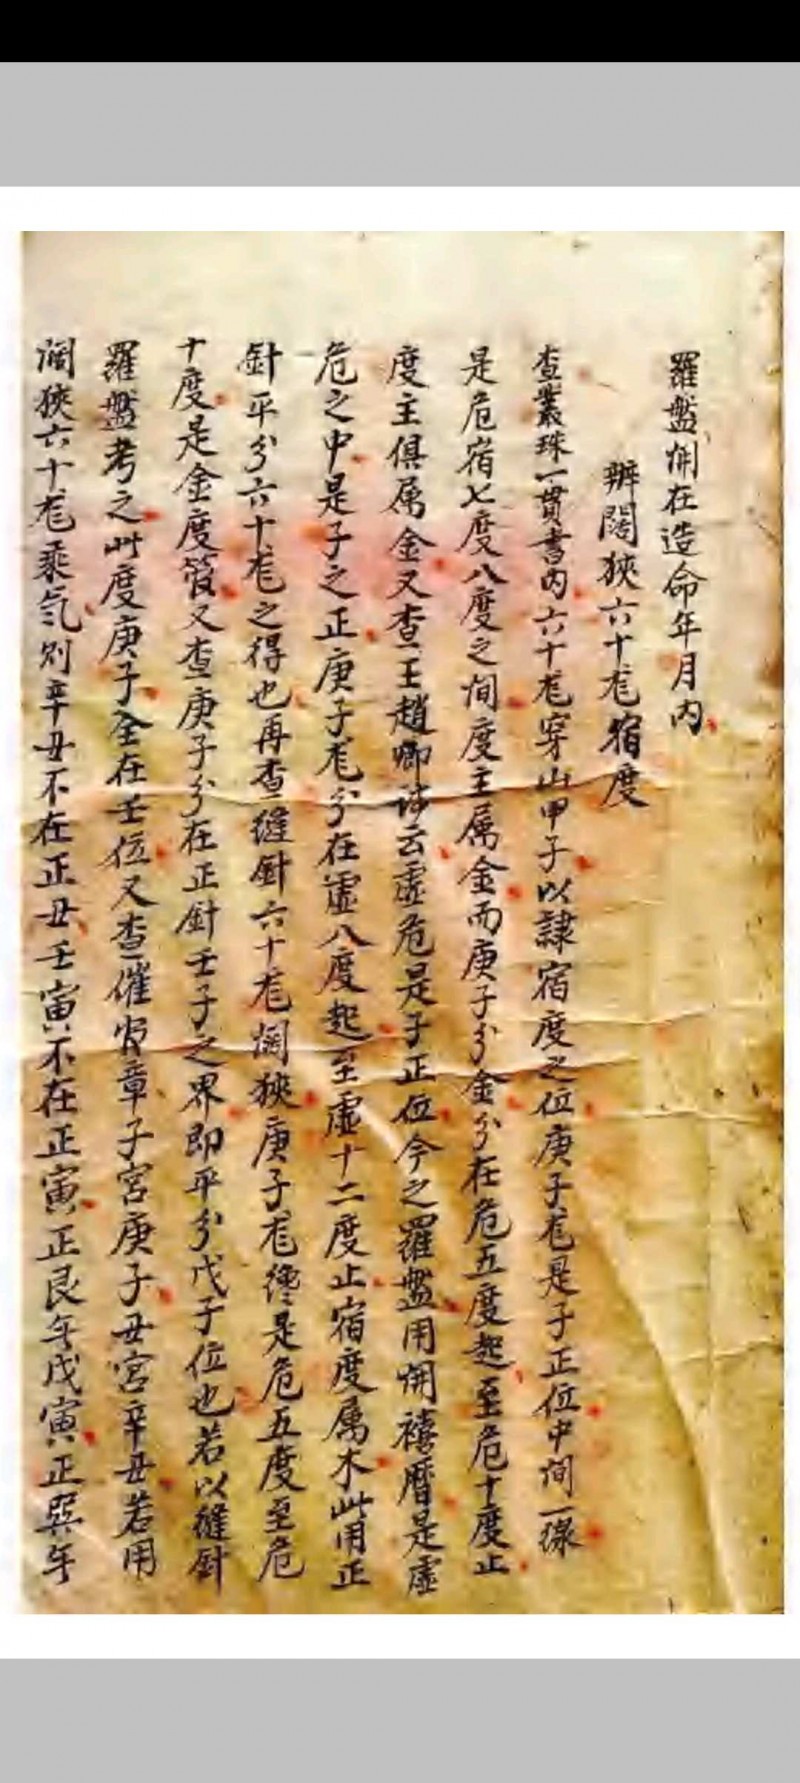 羅盤開在造命年月內
辨闊狹六十龙宿度
查叢珠一貫書內六十龙穿山甲子以隷宿度之位庚子龙是子正位中间一線
是危宿七度八度之间度主属金而庚子分金分在危五度起至危十度止
度主俱属金又查王趙卿詩云虛危是子正位今之羅盤用開禧曆是虛
危之中是子之正庚子龙分在虛八度起至虛十二度止宿度属木此用正
針平分六十龙之得也再查縫針六十龙濶狹庚子龙纔是危五度至危
十度是金度管又查庚子分在正針壬子之界即平分戊子位也若以縫針
羅盤考之此度庚子全在壬位又查催官章子宮庚子丑宮辛丑若用
濶狹六十龙乘気则辛丑不在正丑壬寅不在正寅正艮午戊寅正巽午